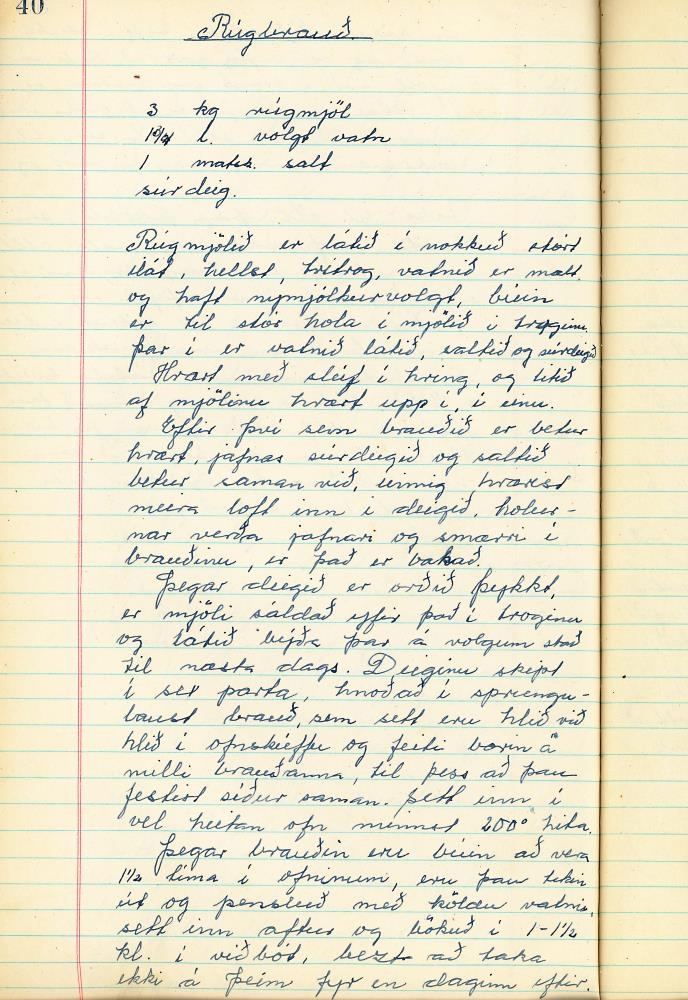 40
Rúgbrauð.
3 kg rúgmjöl
l. volgt vatn
1 matsk. salt
súrdeig.
Rúgmjölið er látið í nokkuð stórt
ílát, hellst, trétrog, vatnið er mælt
og haft nýmjólkurvolgt, búin
er til stór hola í mjölið í troginu.
þar í er vatnið látið, saltið og súrdeigið
Hrært með sleif í hring, og lítið
af mjölinu hrært upp í, í einu.
Eftir því sem brauðið er betur
hrært, jafnas súrdeigið og saltið
betur saman við, einnig hrærist
meira loft inn í deigið, holur-
nar verða jafnari og smærri í
brauðinu, er það er bakað.
Þegar deigið er orðið þykkt,
er mjöli sáldað yfir það í troginu
og látið bíða þar á volgum stað
til næsta dags. Deiginu skipt
í sex parta, hnoðað í sprungu-
laust brauð, sem sett eru hlið við
hlið í ofnskúffu og feiti borin á
milli brauðanna, til þess að þau
festist síður saman. Sett inn í
vel heitan ofn minnst 200° hita.
Þegar brauðin eru búin að vera
1½ tíma í ofninum, eru þau tekin
út og pensluð með köldu vatni,
sett inn aftur og bökuð í 1-1½
kl. í viðbót, bezt að taka
ekki á þeim fyr en daginn eftir.